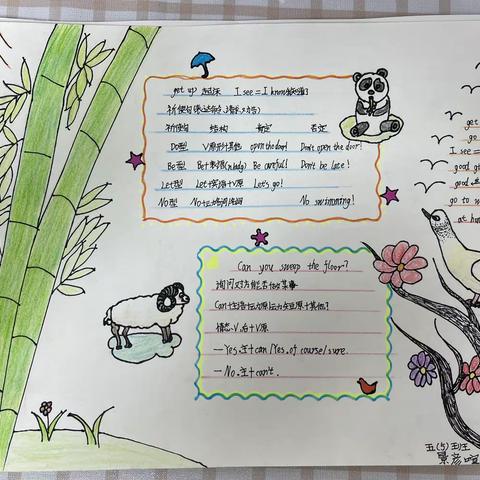 get up 起床 I see = I know 我知道了
祈使句(表达命令、请求、劝告)
祈使句 结构 肯定 否定
Do型 V原形+其他 Open the door! Don't open the door!
Be型 Be+表语(n/adj) Be careful! Don't be late!
Let型 Let+宾语+V原 Let's go!
NO型 No+动名词/名词 No swimming!
Can you sweep the floor?
询问对方能否做某事
Can+主语+动原+其他?
情态.V.后+V原
—Yes.主+can/Yes.of course/sure.
—No.主+can't.
get
go
I see =
good
good
go to
at ho
五(5)班
景彦